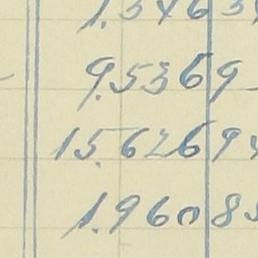 1.34634
9.5369
15.62694
1.96083